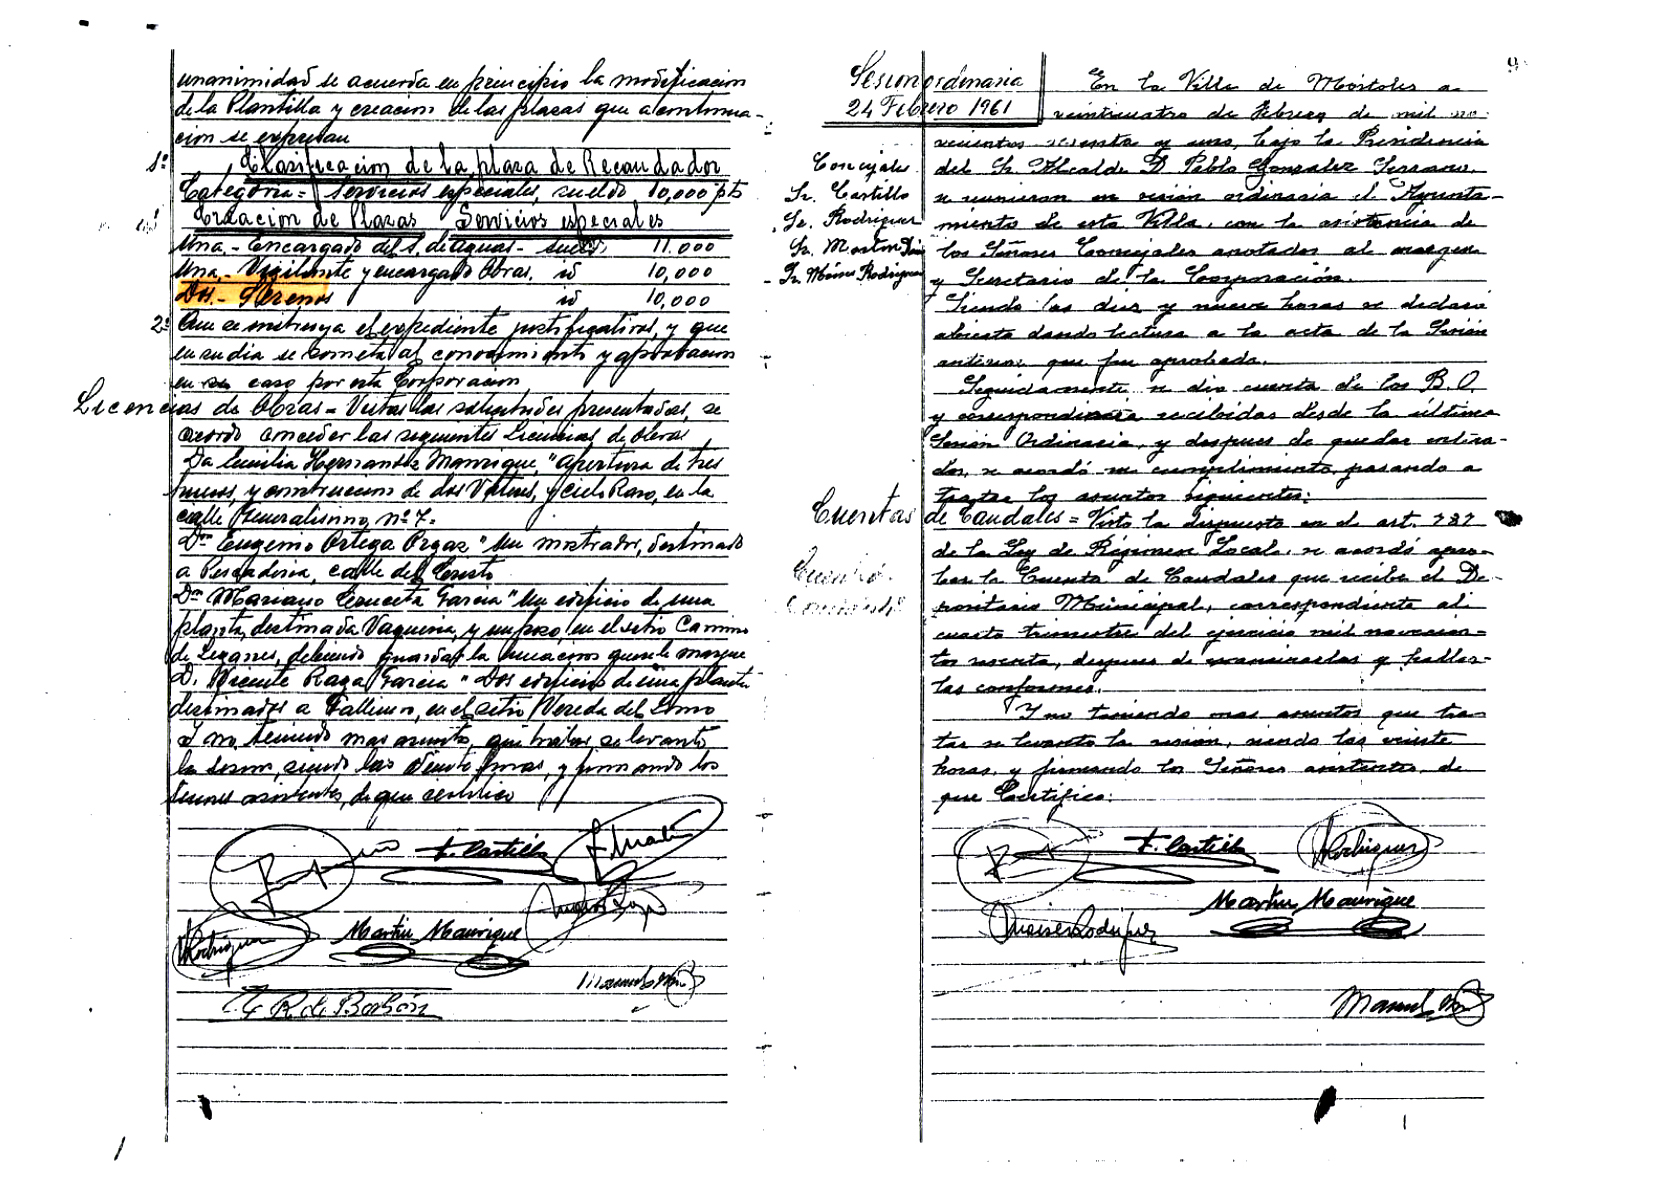 unanimidad se acuerda en principio la modificacion
de la Plantilla y creacion de las plazas que a continua-
cion se expresan
1º Clasificacion de la plaza de Recaudador
Categoria = Servicios especiales, sueldo 10,000 pts
Creacion de Plazas Servicios especiales
Una.- Encargado del S. de aguas - sueldo 11.000
Una.- Vigilante y encargado Obras. id 10,000
Dos.- Serenos id 10,000
2º Que se instruya el expediente justificativo, y que
en su dia se someta al conocimiento y aprobacion
en su caso por esta Corporacion
Licencias de Obras = Vistas las solicitudes presentadas, se
acordo conceder las siguientes Licencias de Obras,
Da Emilia Hernandez Manrique, "apertura de tres
huecos, y construccion de dos Vateres, y Cielo Raso, en la
calle Generalisimo nº 7.
Dn Eugenio Ortega Orgaz " Un mostrador, destinado
a Pescaderia, calle del Cristo
Dn Mariano Garcia " Un edificio de una
planta, destinada Vaqueria, y un pozo, en el sitio Camino
de Leganes, debiendo guardar la que se le marque
D. Vicente Raga Garcia " Dos edificio de una planta
destinados a en el sitio Vereda del
Y no teniendo mas asuntos, que tratar, se levanto
la sesion, siendo las Veinte horas, y firmando los
Señores asistentes, de que certifico
F. Castillo
Rodriguez Martin Manrique
R. de Babón
9
Sesion ordinaria
24 Febrero 1961
Concejales
Sr. Castillo
Sr. Rodriguez
Sr. Martin
Sr. Moises Rodriguez
En la Villa de Móstoles a
veintincuatro de Febrero de mil no-
vecientos sesenta y uno, bajo la Presidencia
del Sr. Alcalde D. Pablo Gonzalez Serrano,
se reunieron en sesion ordinaria el Ayunta-
miento de esta Villa, con la asistencia de
los Señores Concejales anotados al margen
y Secretario de la Corporación.
Siendo las diez y nueve horas se declaró
abierta dando lectura a la acta de la Sesión
anterior, que fue aprobada.
Seguidamente se dio cuenta de los B.O.
y correspondencia recibidas desde la última
Sesion Ordinaria, y despues de quedar entera-
dos, se acordó su cumplimiento, pasando a
tratar los asuntos siguientes:
Cuentas de Caudales = Visto lo dispuesto en el art. 787
de la Ley de Régimen Local, se acordó apro-
bar la Cuenta de Caudales que recibe el De-
positario Municipal, correspondiente al
cuarto trimestre del ejercicio mil novecien-
tos sesenta, despues de examinarlas y hallar-
las conformes.
Y no teniendo mas asuntos que tra-
tar se levanto la sesion, siendo las veinte
horas, y firmando los Señores asistentes, de
que Certifico:
F. Castillo Rodriguez
Moises Rodriguez Martin Manrique
Manuel